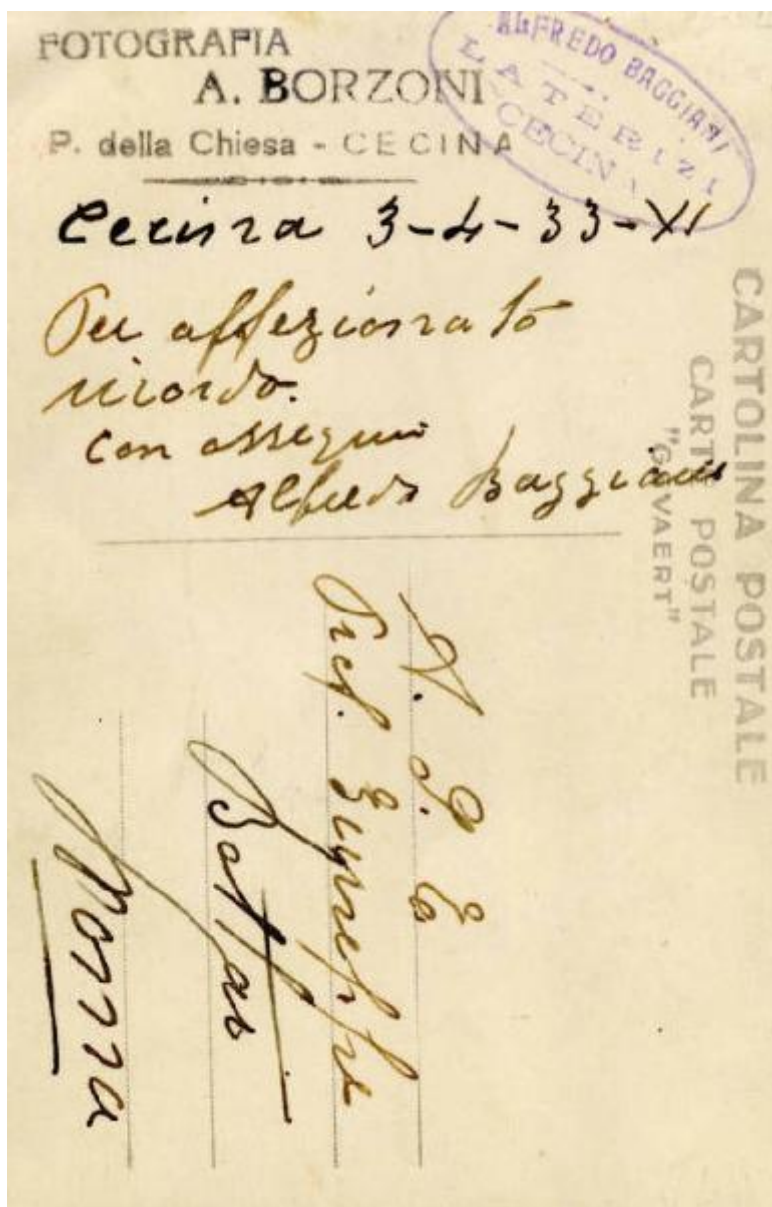 FOTOGRAFIA
A. BORZONI
P. della Chiesa - CECINA
ALFREDO BAGGIANI
LATERIZI
CECINA
Cecina 3-4-33-XI
Per affezionato
ricordo.
Con ossequi
Alfredo Baggiani
CARTOLINA POSTALE
CARTE POSTALE
"GEVAERT"
A. S. E.
Pref. Giuseppe
Roma